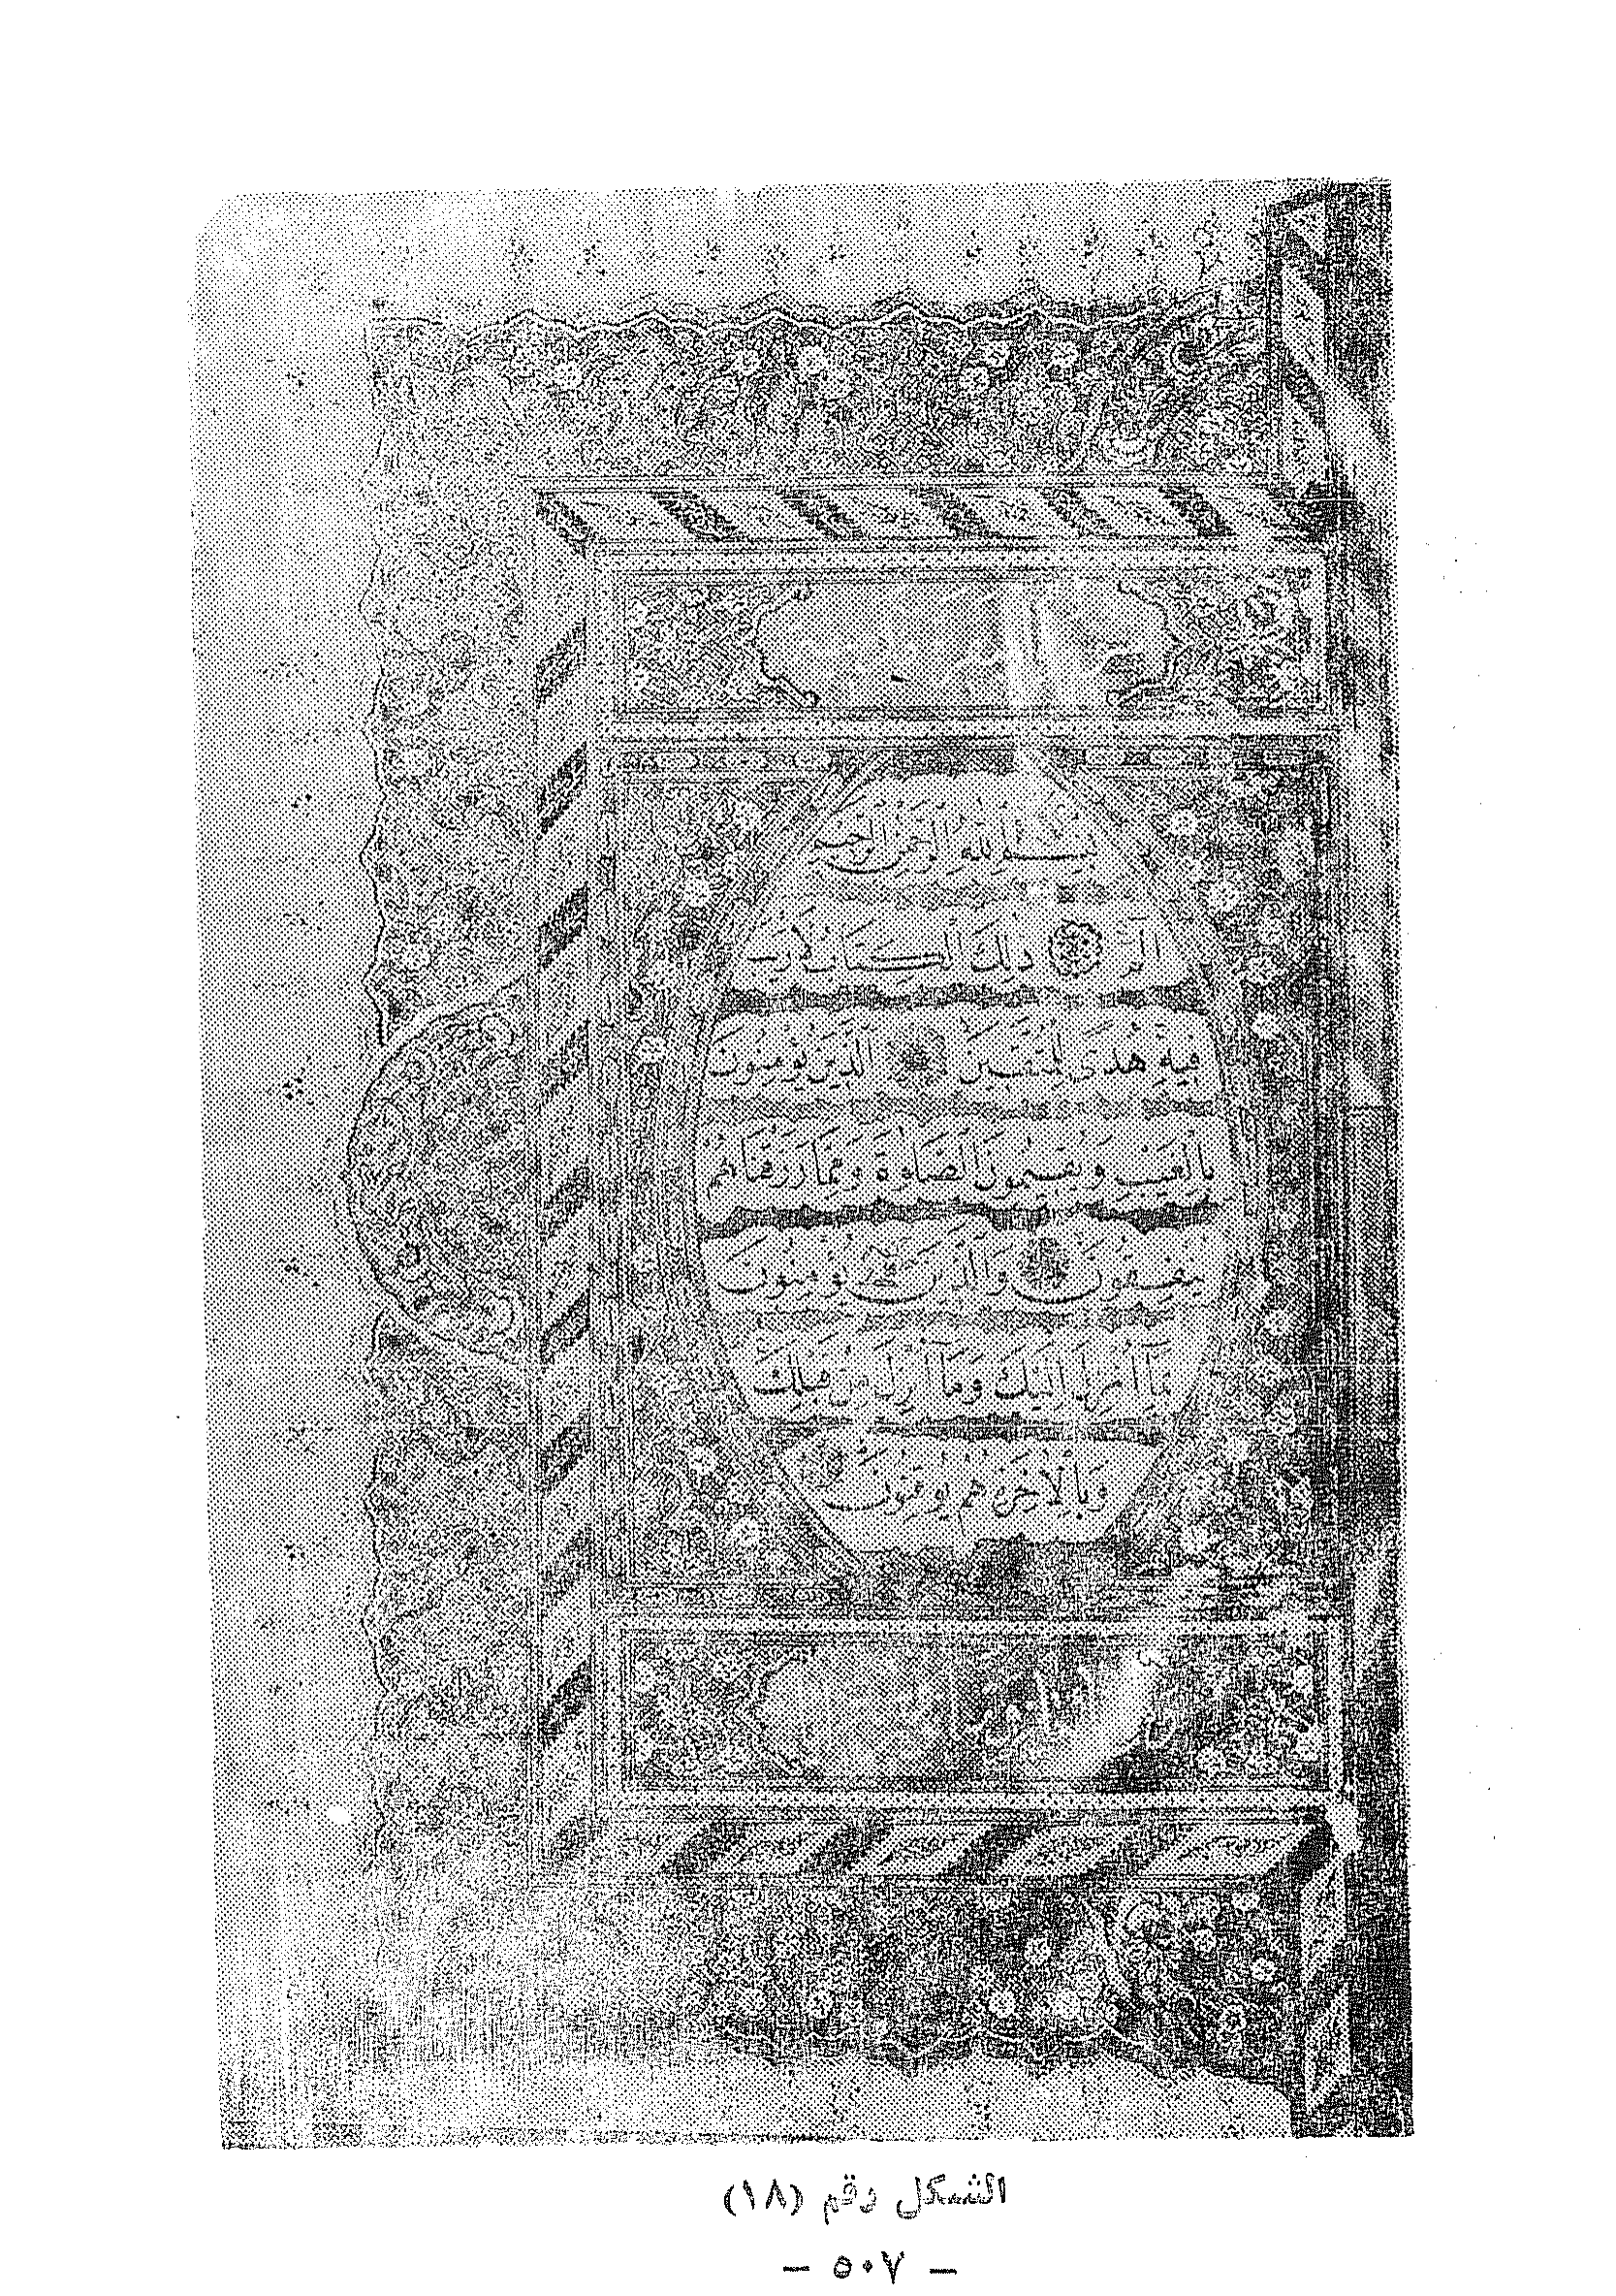 بِسْمِ اللهِ الرَّحْمٰنِ الرَّحِيمِ
الم ذٰلِكَ الْكِتَابُ لَا رَيْبَ
فِيهِ هُدًى لِلْمُتَّقِينَ الَّذِينَ يُؤْمِنُونَ
بِالْغَيْبِ وَيُقِيمُونَ الصَّلٰوةَ وَمِمَّا رَزَقْنَاهُمْ
يُنْفِقُونَ وَالَّذِينَ يُؤْمِنُونَ
بِمَا أُنْزِلَ إِلَيْكَ وَمَا أُنْزِلَ مِنْ قَبْلِكَ
وَبِالْآخِرَةِ هُمْ يُوقِنُونَ
الشكل رقم (١٨)
— ٥٠٧ —